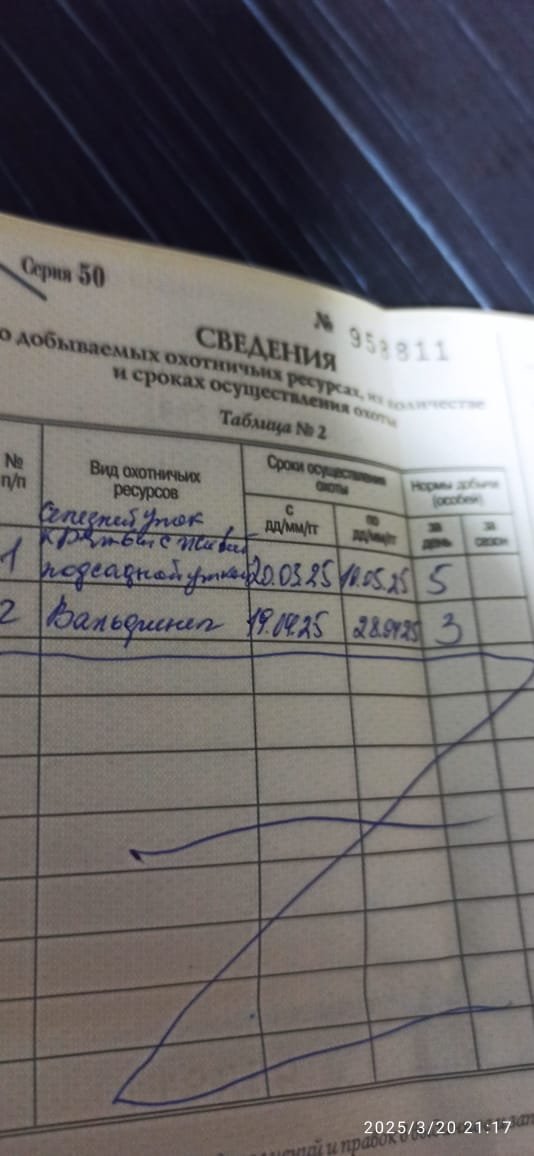 Серия 50
№ 958811
СВЕДЕНИЯ
о добываемых охотничьих ресурсах, их количестве
и сроках осуществления охоты
Таблица № 2
№ п/п
Вид охотничьих ресурсов
Сроки осуществления охоты
Нормы добычи (особей)
с дд/мм/гг
по дд/мм/гг
за день
за сезон
Селезней уток
1 кряковых с живой
подсадной уткой 20.03.25 10.05.25 5
2 Вальдшнеп 19.04.25 28.04.25 3
2025/3/20 21:17